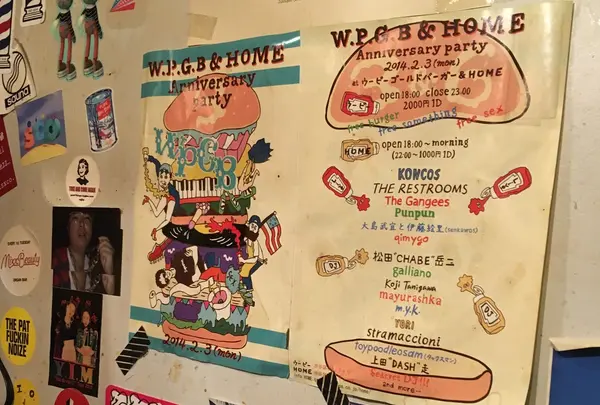 W.P.G.B & HOME
Anniversary
party
WPGB
2014.2.3(mon)
W.P.G.B & HOME
Anniversary party
2014.2.3(mon)
at ウーピーゴールドバーガー & HOME
open 18:00 close 23:00
2000円 1D
free burger
free something
free sex
HOME
open 18:00~morning
(22:00~1000円1D)
KONCOS
THE RESTROOMS
The Gangees
Punpun
qimygo
DJ
松田"CHABE"岳二
galliano
DJ
Koji Tanigawa
mayurashka
m.y.k
YORI
stramaccioni
toypoodleosam
上田"DASH"走
secret DJ!!!
and more...
ウーピー
HOME
SOUND
MossBeauty
THE PAT
FUCKIN
NOIZE